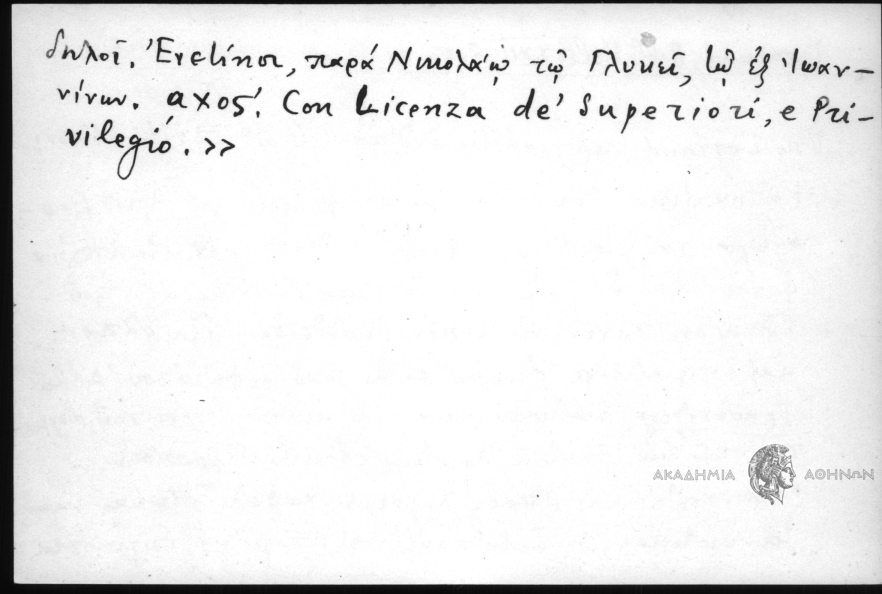 δηλοῖ. Ἐνετίησι, παρά Νικολάῳ τῷ Γλυκεῖ, τῷ ἐξ Ἰωαν-
νίνων. αχοϛ΄. Con Licenza de' Superiori, e Pri-
vilegió. >>
ΑΚΑΔΗΜΙΑ ΑΘΗΝΩΝ